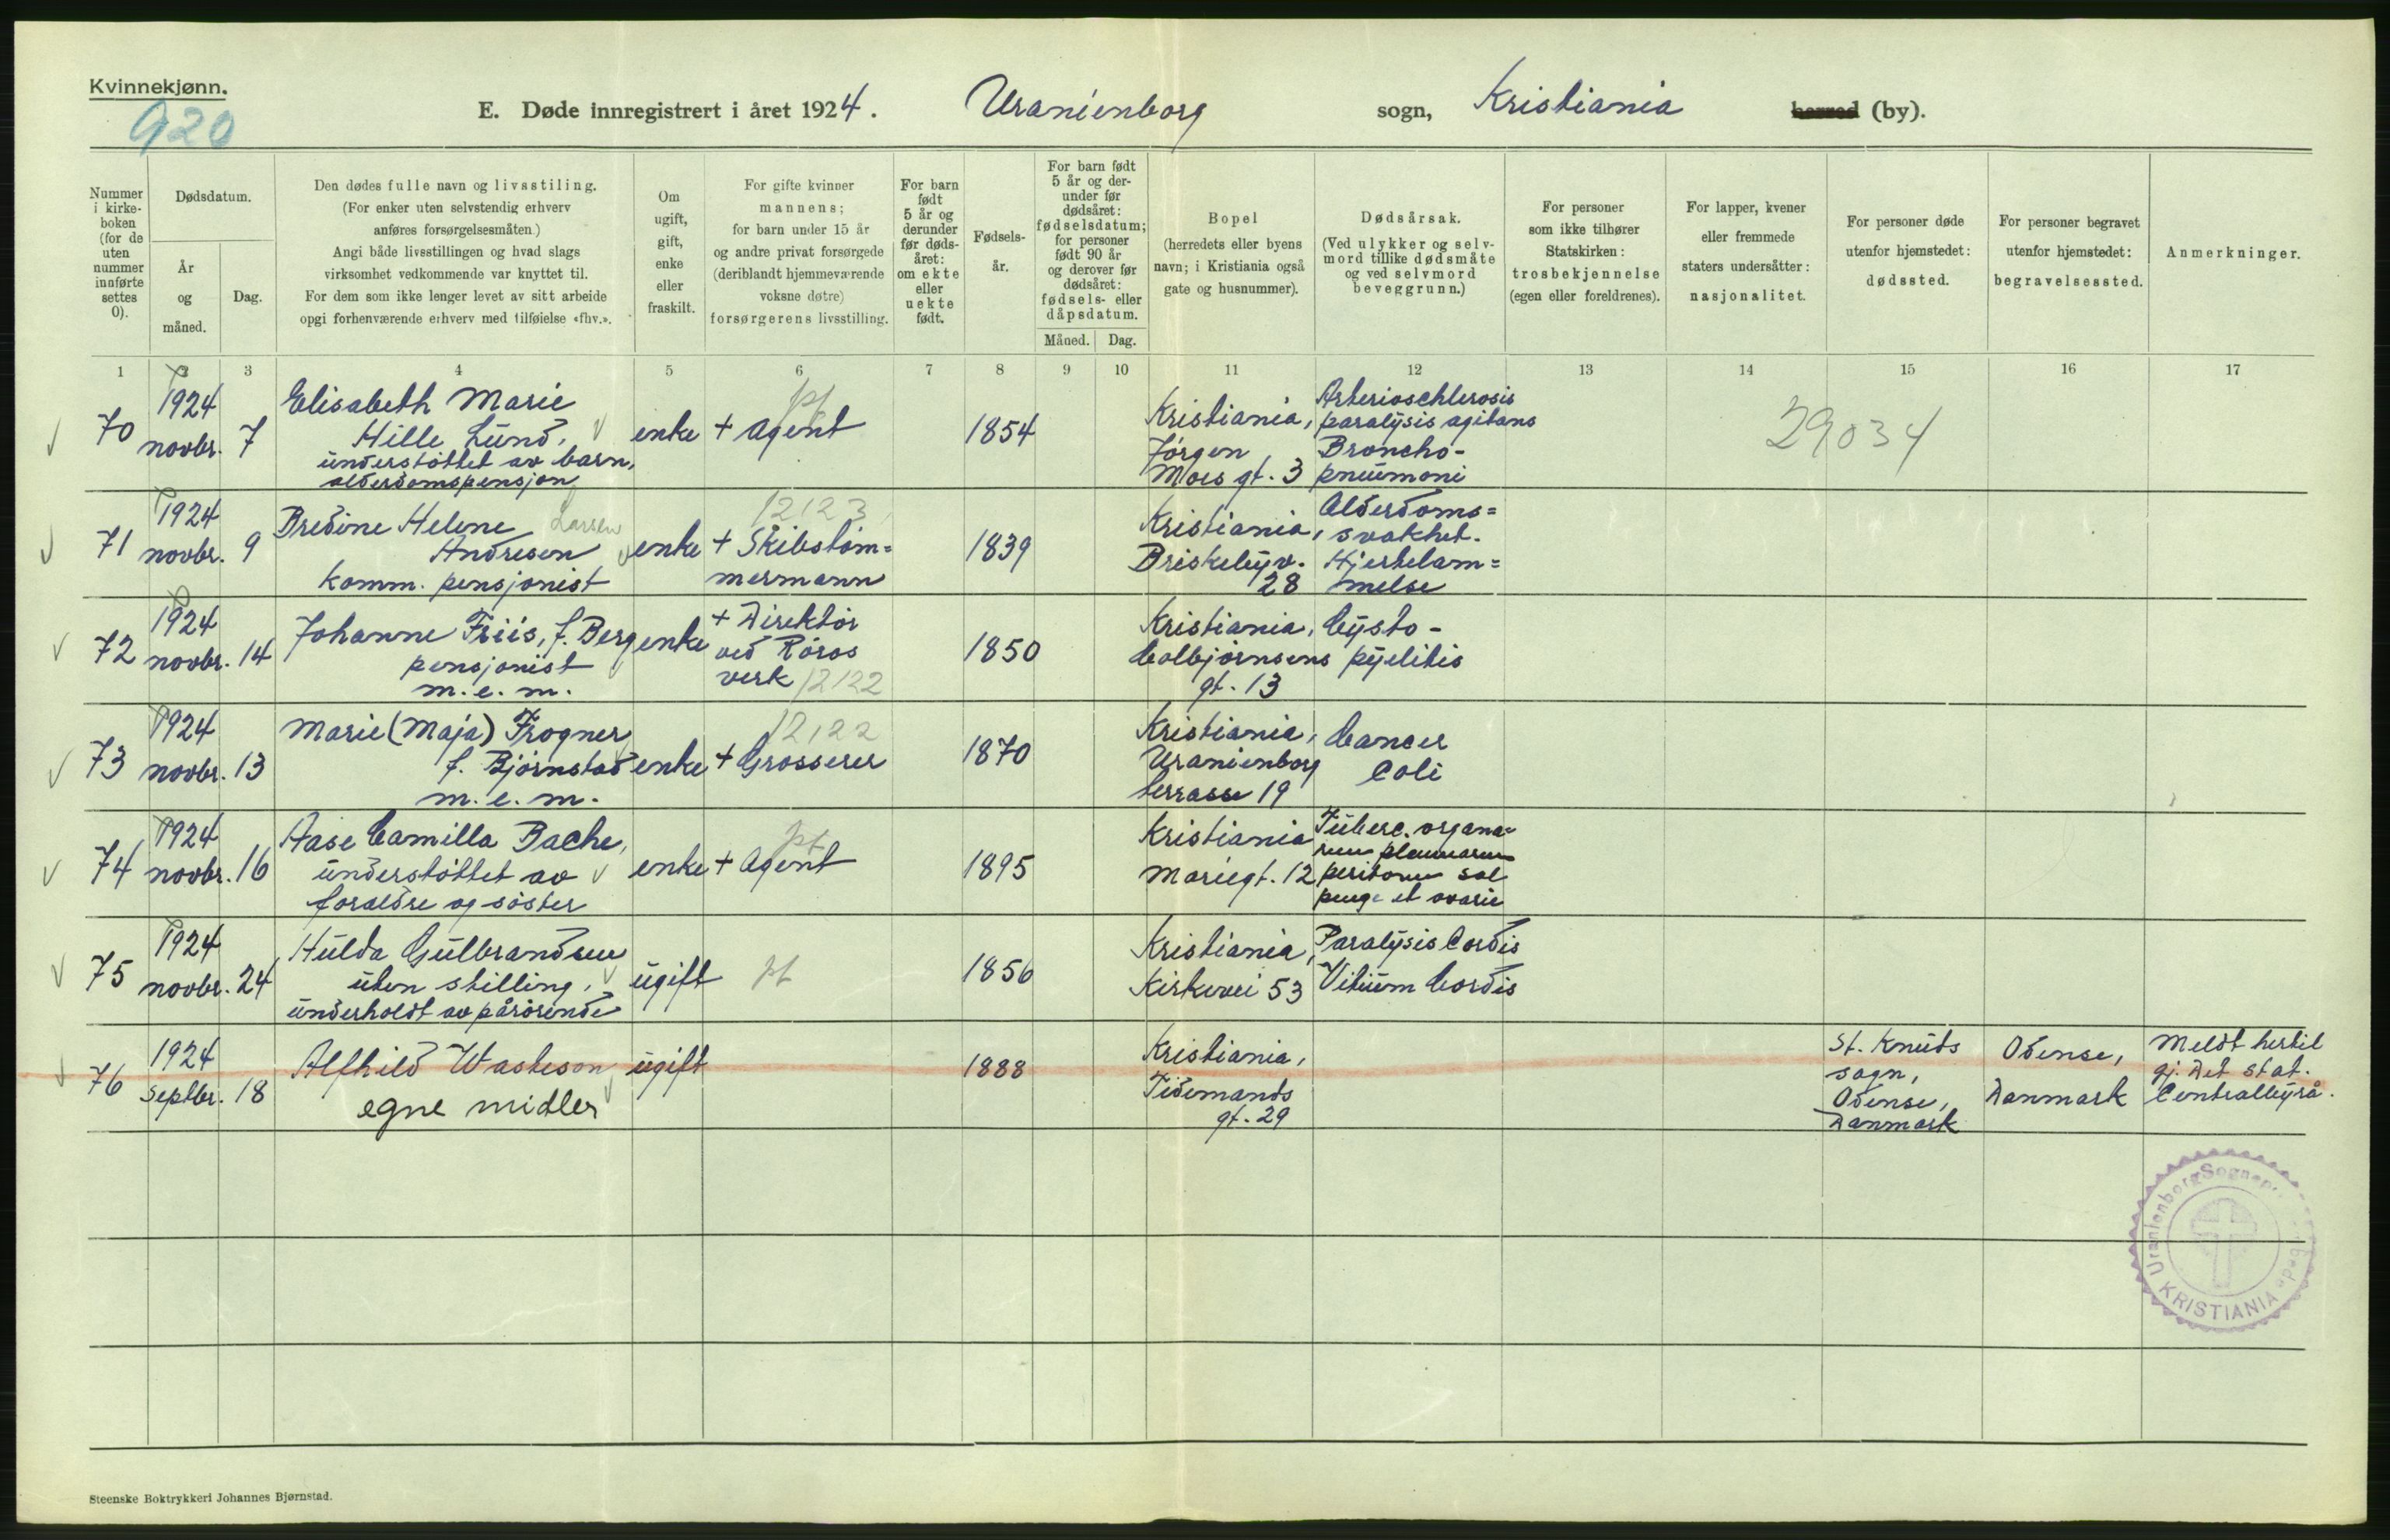 Kvinnekjønn.
920
E. Døde innregistrert i året 1924. Uranienborg sogn, Kristiania herred (by).
Nummer i kirke- boken (for de uten nummer innførte settes 0).
Dødsdatum.
År og måned.
Dag.
Den dødes fulle navn og livsstiling.
(For enker uten selvstendig erhverv
anføres forsørgelsesmåten.)
Angi både livsstillingen og hvad slags
virksomhet vedkommende var knyttet til.
For dem som ikke lenger levet av sitt arbeide
opgi forhenværende erhverv med tilføielse «fhv.».
Om
ugift,
gift,
enke
eller
fraskilt.
For gifte kvinner
mannens;
for barn under 15 år
og andre privat forsørgede
(deriblandt hjemmeværende
voksne døtre)
forsørgerens livsstilling.
For barn
født
5 år og
derunder
før døds-
året:
om ekte
eller
uekte
født.
Fødsels-
år.
For barn født
5 år og der-
under før
dødsåret:
fødselsdatum;
for personer
født 90 år
og derover før
dødsåret:
fødsels- eller
dåpsdatum.
Måned. Dag.
Bopel
(herredets eller byens
navn; i Kristiania også
gate og husnummer).
Dødsårsak.
(Ved ulykker og selv-
mord tillike dødsmåte
og ved selvmord
beveggrunn.)
For personer
som ikke tilhører
Statskirken:
trosbekjennelse
(egen eller foreldrenes).
For lapper, kvener
eller fremmede
staters undersåtter:
nasjonalitet.
For personer døde
utenfor hjemstedet:
dødssted.
For personer begravet
utenfor hjemstedet:
begravelsessted.
Anmerkninger.
1 2 3 4 5 6 7 8 9 10 11 12 13 14 15 16 17
70
1924
novbr. 7
Elisabeth Marie
Hille Lund,
understøttet av barn,
alderdomspensjon
enke
pt
+ Agent
1854
Kristiania,
Jørgen
Moes gt. 3
Arterioschlerosis
paralysis agitans
Broncho-
pneumoni
29034
71
1924
novbr. 9
Bredine Helene Larsen
Andresen
komm. pensjonist
enke
12123
+ Skibstøm=
mermann
1839
Kristiania,
Briskebyv.
28
Alderdoms=
svakhet.
Hjertelam=
melse
72
1924
novbr. 14
Johanne Friis, f. Berg
pensjonist
m. e. m.
enke
+ Direktør
ved Røros
verk 12122
1850
Kristiania,
Colbjørnsens
gt. 13
Cysto-
pyelitis
73
1924
novbr. 13
Marie (Maja) Frogner
f. Bjørnstad
m. e. m.
enke
12122
+ Grosserer
1870
Kristiania,
Uranienborg
terrasse 19
Cancer
Coli
74
1924
novbr. 16
Aase Camilla Bache,
understøttet av
foreldre og søster
enke
pt
+ Agent
1895
Kristiania
Mariegt. 12
Tuberc. organo=
et ovarie
75
1924
novbr. 24
Hulda Gulbrandsen
uten stilling,
underholdt av pårørende
ugift
pt
1856
Kristiania,
Kirkevei 53
Paralysis Cordis
Vitium Cordis
76
1924
septbr. 18
Alfhild Wasteson
egne midler
ugift
1888
Kristiania,
Tidemands
gt. 29
St. Knuds
sogn,
Odense,
Danmark
Odense,
Danmark
Meldt hertil
gj. Det stat.
Centralbyrå.
Uranienborg Sognep
KRISTIANIA
Steenske Boktrykkeri Johannes Bjørnstad.